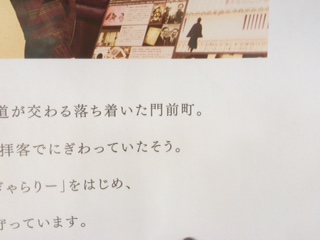 道が交わる落ち着いた門前町。
拝客でにぎわっていたそう。
ぎゃらりー」をはじめ、
守っています。